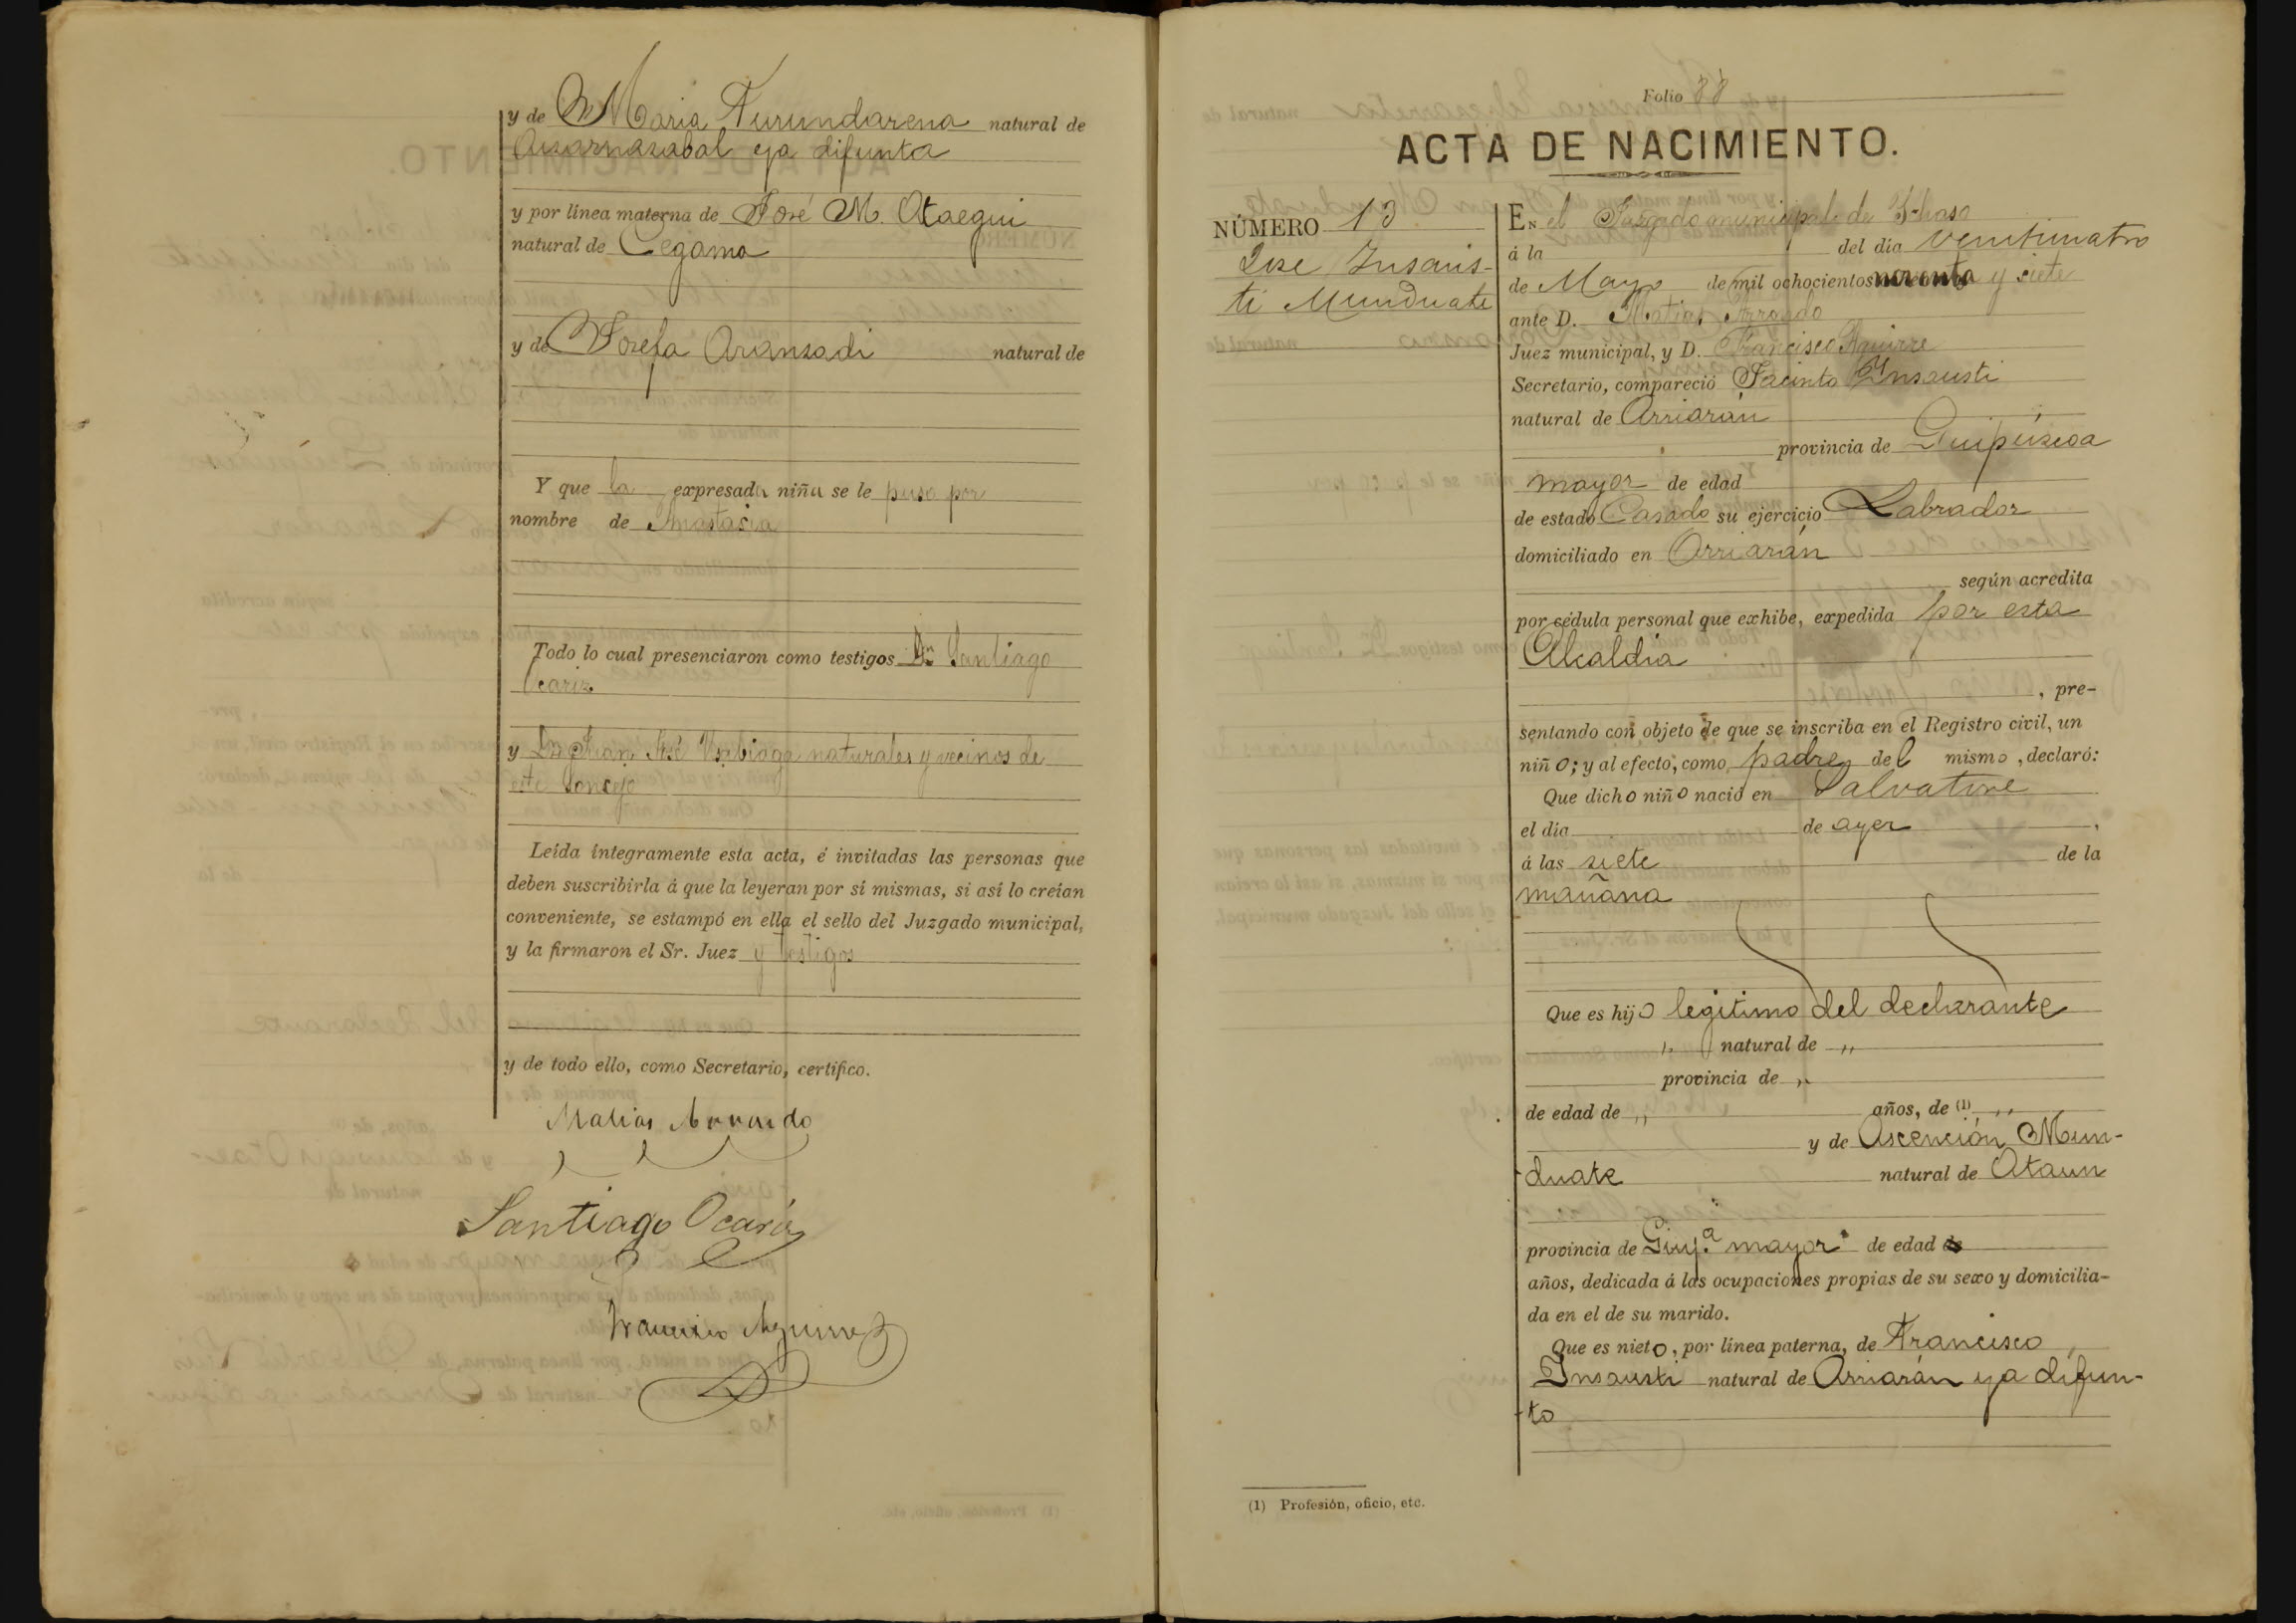 y de M Maria Turundarena natural de
ya difunta
y por línea materna de José M. Otaegui
natural de Cegama
y de Josefa Aransadi natural de
Y que la expresada niña se le puso por
nombre de Anastasia
Todo lo cual presenciaron como testigos Dn Santiago
Ocariz
y Dn Juan José naturales y vecinos de
este Concejo
Leída íntegramente esta acta, é invitadas las personas que
deben suscribirla á que la leyeran por sí mismas, si así lo creían
conveniente, se estampó en ella el sello del Juzgado municipal,
y la firmaron el Sr. Juez y testigos
y de todo ello, como Secretario, certifico.
Matias Arrondo
Santiago Ocariz
Francisco Aguirre
Folio 88
ACTA DE NACIMIENTO.
NÚMERO 13
Jose Insaus-
ti Munduate
EN el Juzgado municipal de Ichaso
á la del día veinticuatro
de Mayo de mil ochocientos noventa y siete
ante D. Matias Arrondo
Juez municipal, y D. Francisco Aguirre
Secretario, compareció Jacinto Insausti
natural de Arriarán
provincia de Guipúzcoa
mayor de edad
de estado Casado su ejercicio Labrador
domiciliado en Arriarán
según acredita
por cédula personal que exhibe, expedida por esta
Alcaldia
, pre-
sentando con objeto de que se inscriba en el Registro civil, un
niño; y al efecto, como padre del mismo, declaró:
Que dicho niño nació en Salvatore
el día de ayer ,
á las siete de la
mañana
Que es hijo legitimo del declarante
,, natural de ,,
provincia de ,,
de edad de ,, años, de (1) ,,
y de Ascención Mun-
duate natural de Ataun
provincia de Guip.a mayor de edad de
años, dedicada á las ocupaciones propias de su sexo y domicilia-
da en el de su marido.
Que es nieto, por línea paterna, de Francisco
Insausti natural de Arriarán ya difun-
to
(1) Profesión, oficio, etc.